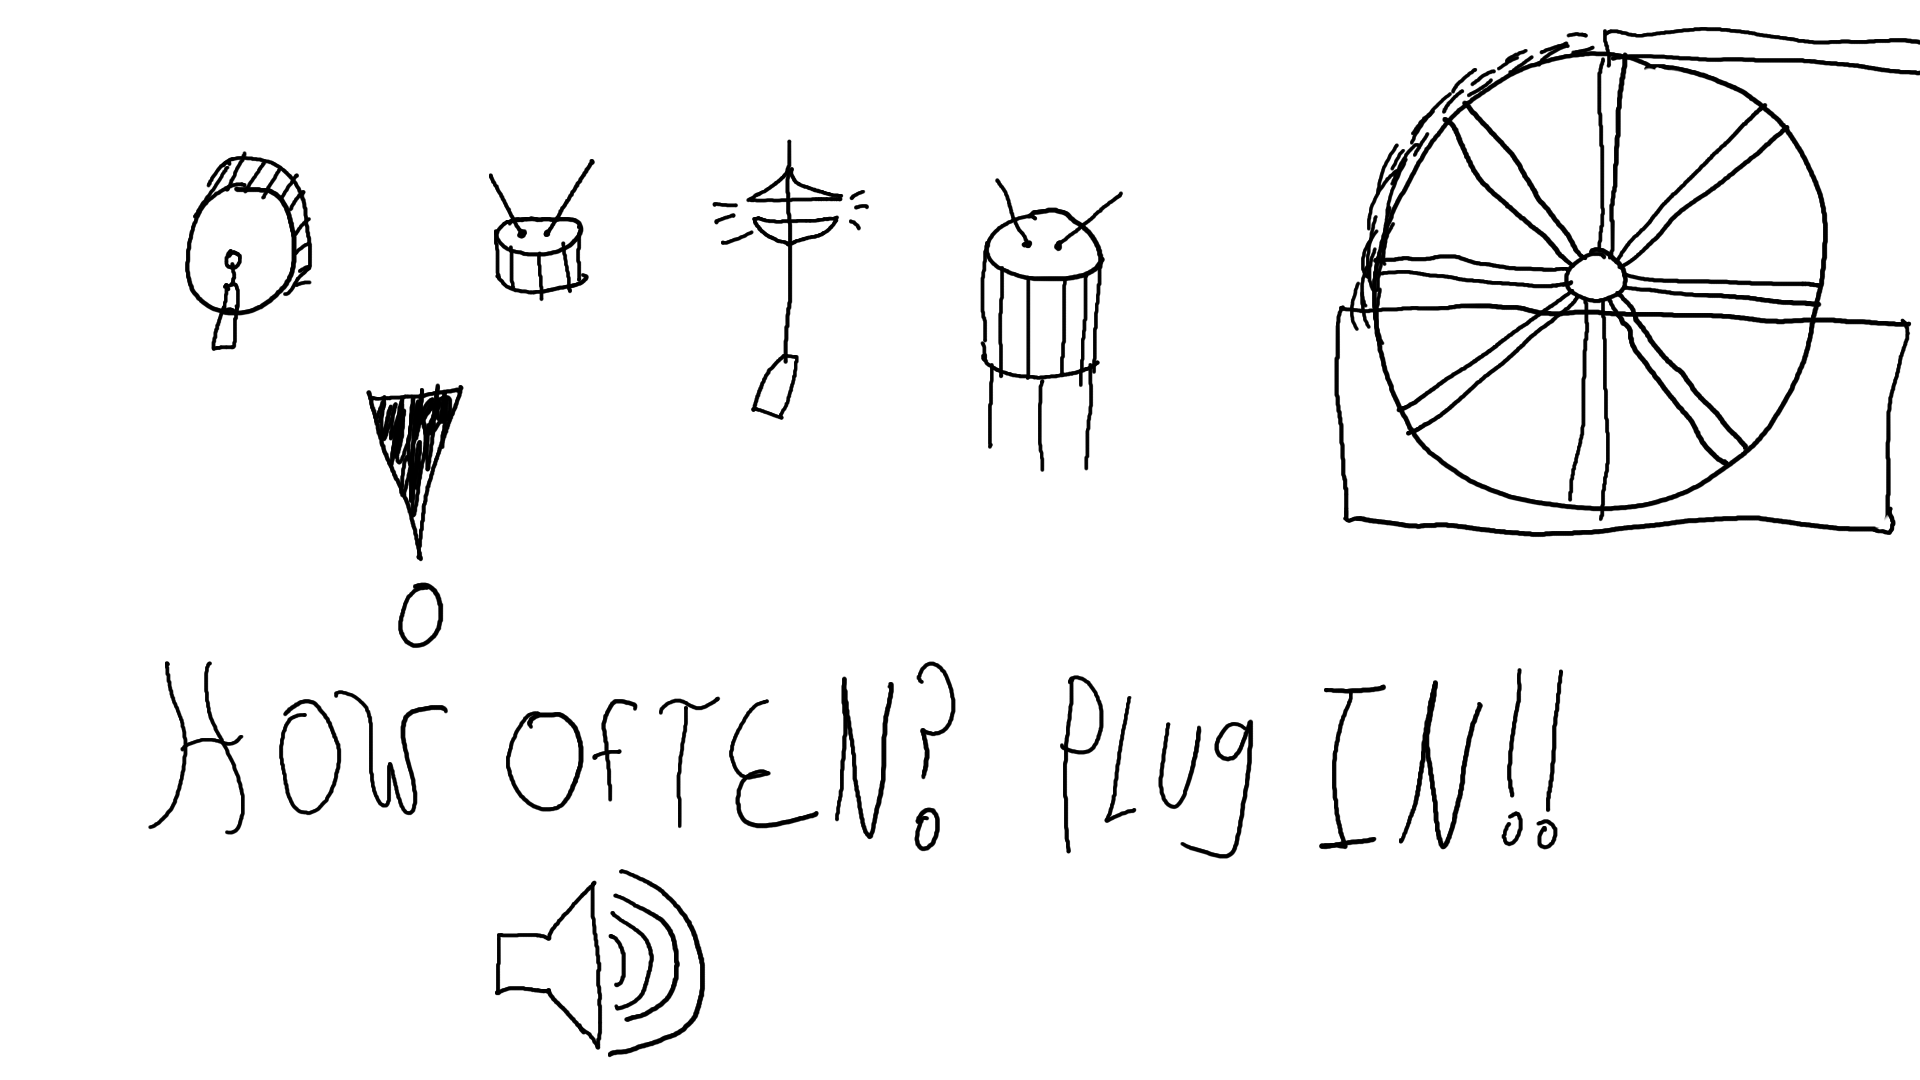 HOW OfTEN? PLUg IN!!